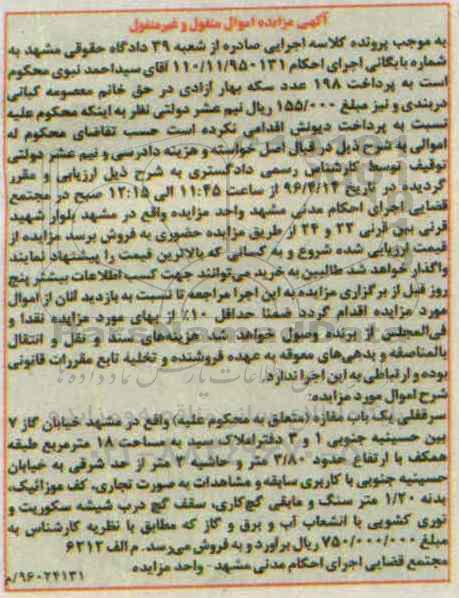 آگهی مزایده اموال منقول و غیرمنقول
به موجب پرونده کلاسه اجرایی صادره از شعبه ۳۹ دادگاه حقوقی مشهد به
شماره بایگانی اجرای احکام ۱۱۰/۱۱/۹۵۰۱۳۱ آقای سیداحمد نبوی محکوم
است به پرداخت ۱۹۸ عدد سکه بهار آزادی در حق خانم معصومه کیانی
دربندی و نیز مبلغ ۱۵۵/۰۰۰ ریال نیم عشر دولتی نظر به اینکه محکوم علیه
نسبت به پرداخت دیونش اقدامی نکرده است حسب تقاضای محکوم له
اموالی به شرح ذیل در قبال اصل خواسته و هزینه دادرسی و نیم عشر دولتی
توقیف و توسط کارشناس رسمی دادگستری به شرح ذیل ارزیابی و مقرر
گردیده در تاریخ ۹۶/۴/۱۴ از ساعت ۱۱:۴۵ الی ۱۲:۱۵ صبح در مجتمع
قضایی اجرای احکام مدنی مشهد واحد مزایده واقع در مشهد بلوار شهید
قرنی بین قرنی ۲۲ و ۲۴ از طریق مزایده حضوری به فروش برسد مزایده از
قیمت ارزیابی شده شروع و به کسانی که بالاترین قیمت را پیشنهاد نمایند
واگذار خواهد شد طالبین به خرید می‌توانند جهت کسب اطلاعات بیشتر پنج
روز قبل از برگزاری مزایده به این اجرا مراجعه تا نسبت به بازدید آنان از اموال
مورد مزایده اقدام گردد ضمنا حداقل ۱۰٪ از بهای مورد مزایده نقدا و
فی‌المجلس از برنده وصول خواهد شد. هزینه‌های سند و نقل و انتقال
بالمناصفه و بدهی‌های معوقه به عهده فروشنده و تخلیه تابع مقررات قانونی
بوده و ارتباطی به این اجرا ندارد.
شرح اموال مورد مزایده:
سرقفلی یک باب مغازه (متعلق به محکوم علیه) واقع در مشهد خیابان گاز ۷
بین حسینیه جنوبی ۱ و ۳ دفتر املاک سید به مساحت ۱۸ مترمربع طبقه
همکف با ارتفاع حدود ۳/۸۰ متر و حاشیه ۳ متر از حد شرقی به خیابان
حسینیه جنوبی با کاربری سابقه و مشاهدات به صورت تجاری، کف موزائیک،
بدنه ۱/۲۰ متر سنگ و مابقی گچ‌کاری، سقف گچ درب شیشه سکوریت و
توری کشویی با انشعاب آب و برق و گاز که مطابق با نظریه کارشناس به
مبلغ ۷۵۰/۰۰۰/۰۰۰ ریال برآورد و به فروش می‌رسد. م الف ۶۲۱۲
مجتمع قضایی اجرای احکام مدنی مشهد - واحد مزایده
۹۶۰۲۴۱۳۱/م